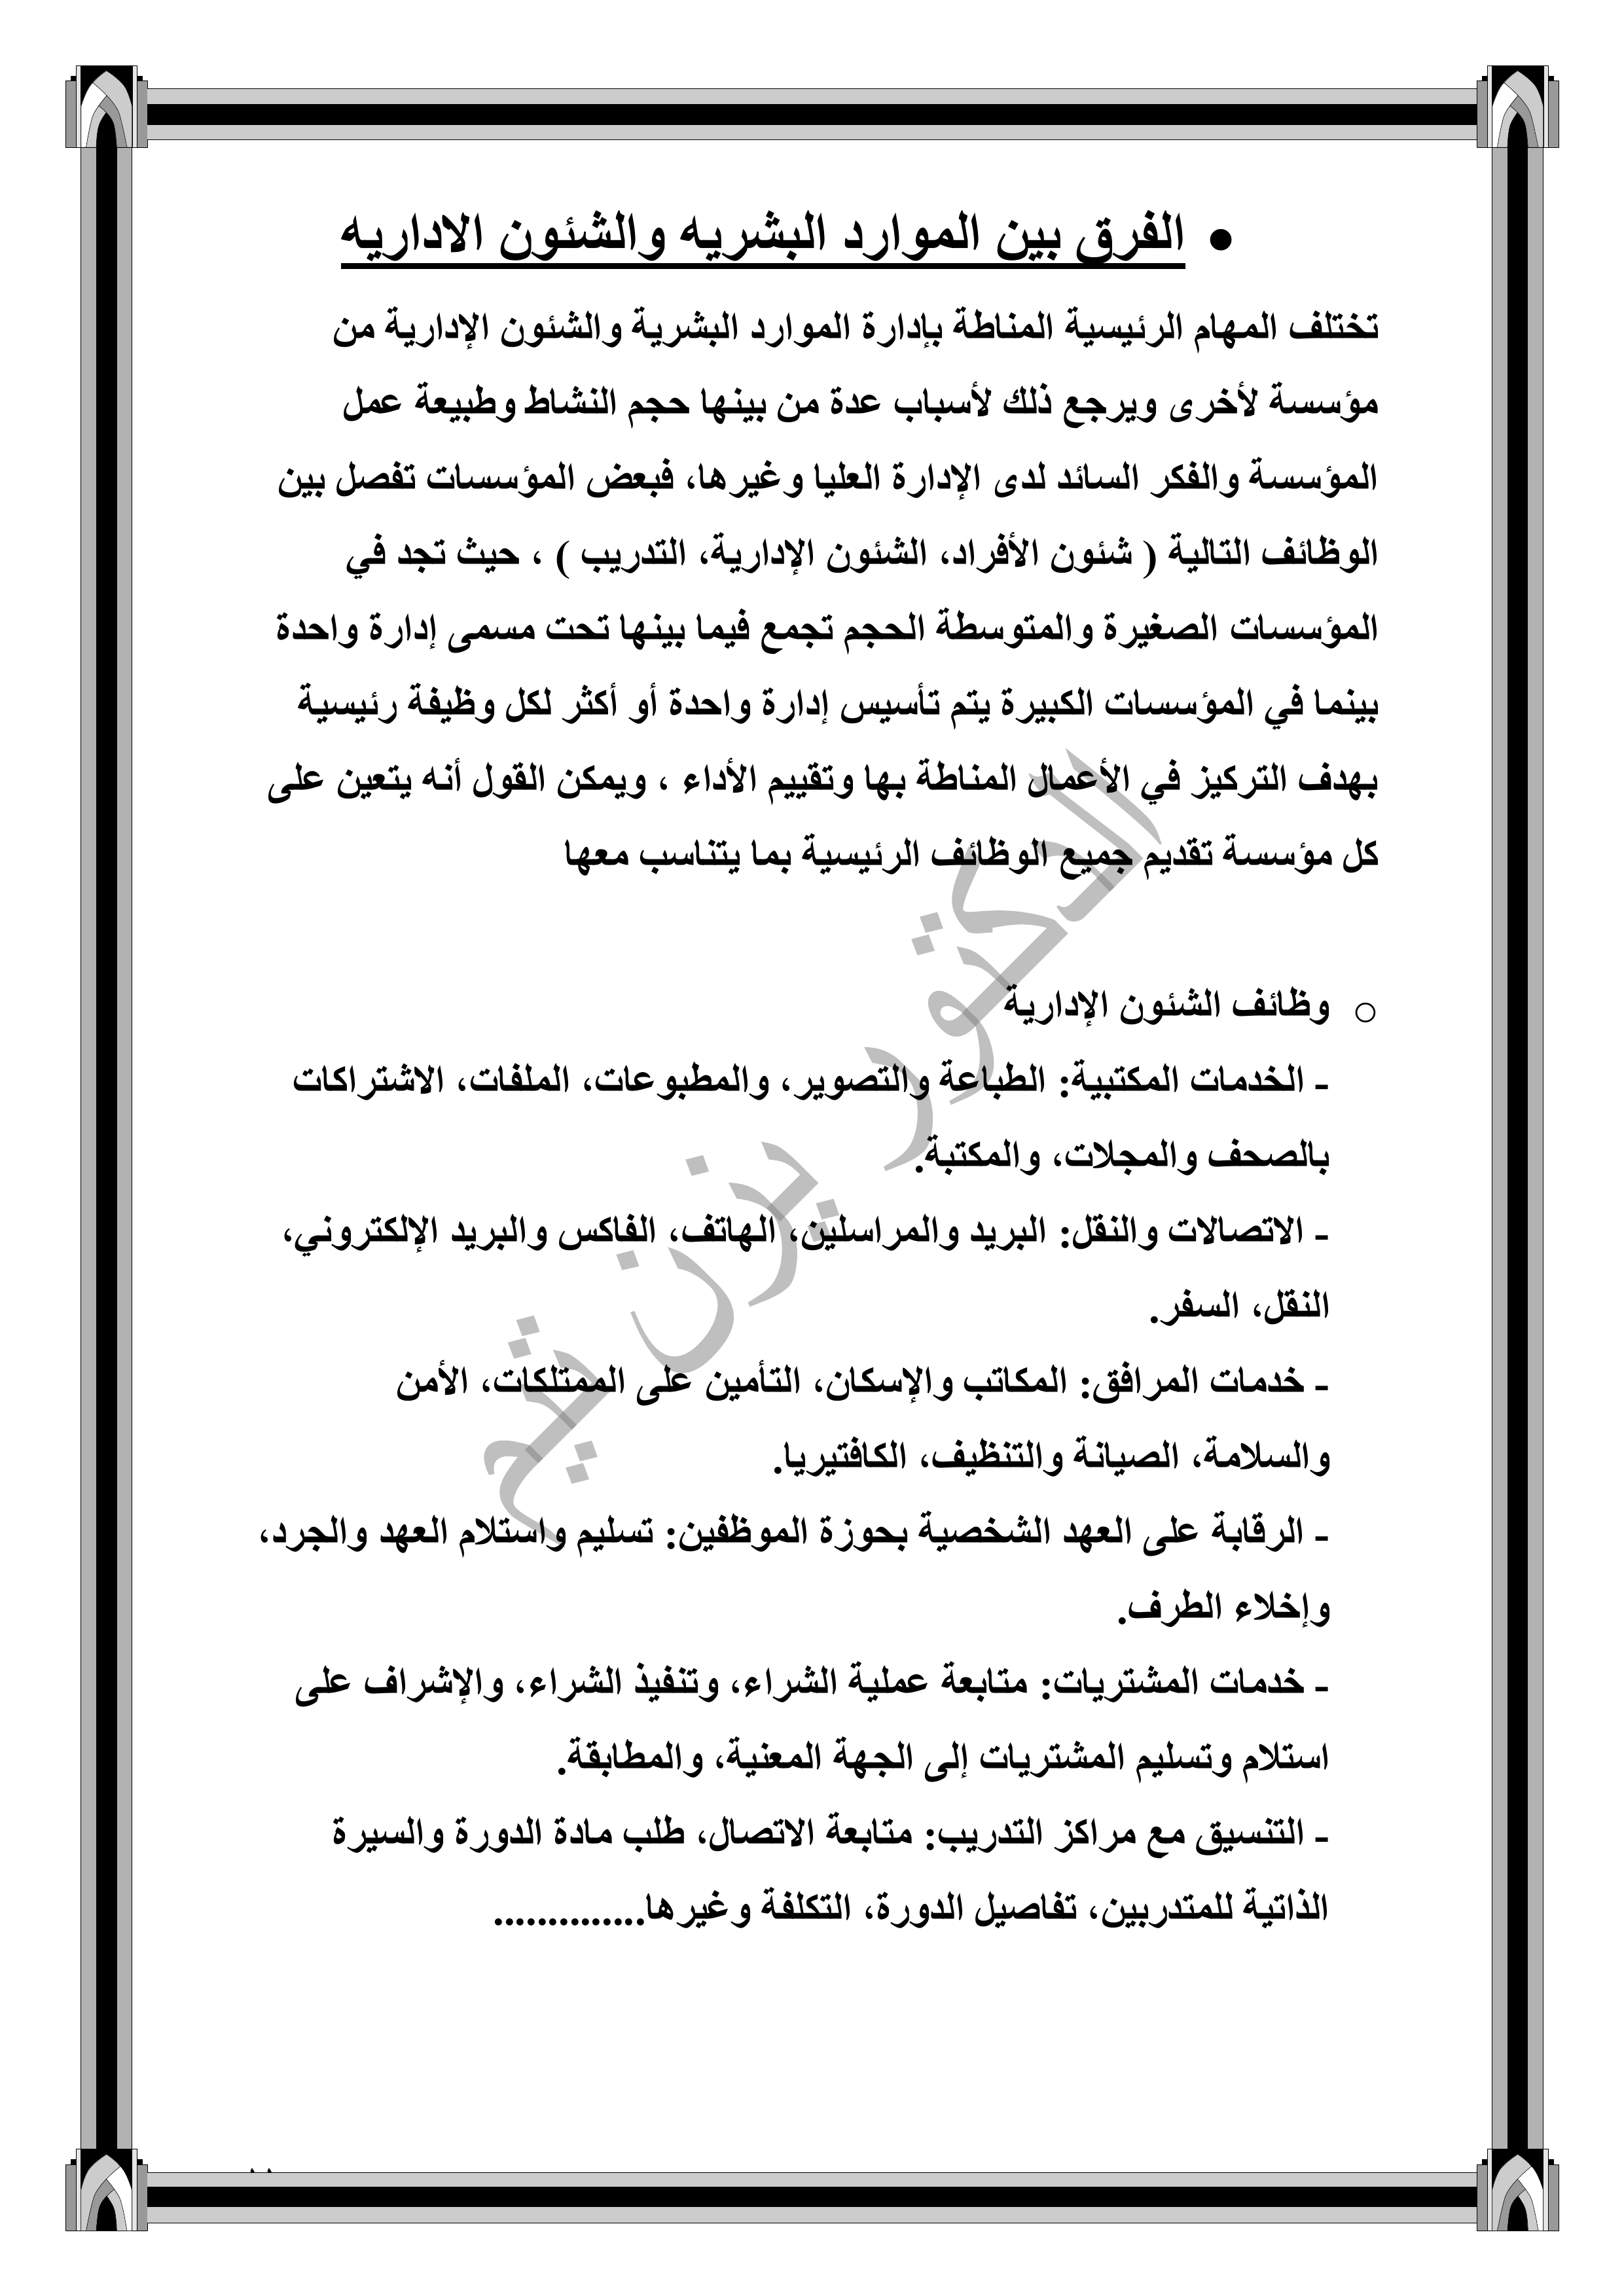 • الفرق بين الموارد البشريه والشئون الاداريه
تختلف المهام الرئيسية المناطة بإدارة الموارد البشرية والشئون الإدارية من
مؤسسة لأخرى ويرجع ذلك لأسباب عدة من بينها حجم النشاط وطبيعة عمل
المؤسسة والفكر السائد لدى الإدارة العليا وغيرها، فبعض المؤسسات تفصل بين
الوظائف التالية ( شئون الأفراد، الشئون الإدارية، التدريب ) ، حيث تجد في
المؤسسات الصغيرة والمتوسطة الحجم تجمع فيما بينها تحت مسمى إدارة واحدة
بينما في المؤسسات الكبيرة يتم تأسيس إدارة واحدة أو أكثر لكل وظيفة رئيسية
بهدف التركيز في الأعمال المناطة بها وتقييم الأداء ، ويمكن القول أنه يتعين على
كل مؤسسة تقديم جميع الوظائف الرئيسية بما يتناسب معها
○ وظائف الشئون الإدارية
- الخدمات المكتبية: الطباعة والتصوير، والمطبوعات، الملفات، الاشتراكات
بالصحف والمجلات، والمكتبة.
- الاتصالات والنقل: البريد والمراسلين، الهاتف، الفاكس والبريد الإلكتروني،
النقل، السفر.
- خدمات المرافق: المكاتب والإسكان، التأمين على الممتلكات، الأمن
والسلامة، الصيانة والتنظيف، الكافتيريا.
- الرقابة على العهد الشخصية بحوزة الموظفين: تسليم واستلام العهد والجرد،
وإخلاء الطرف.
- خدمات المشتريات: متابعة عملية الشراء، وتنفيذ الشراء، والإشراف على
استلام وتسليم المشتريات إلى الجهة المعنية، والمطابقة.
- التنسيق مع مراكز التدريب: متابعة الاتصال، طلب مادة الدورة والسيرة
الذاتية للمتدربين، تفاصيل الدورة، التكلفة وغيرها..............
الدكتور يزن تيم